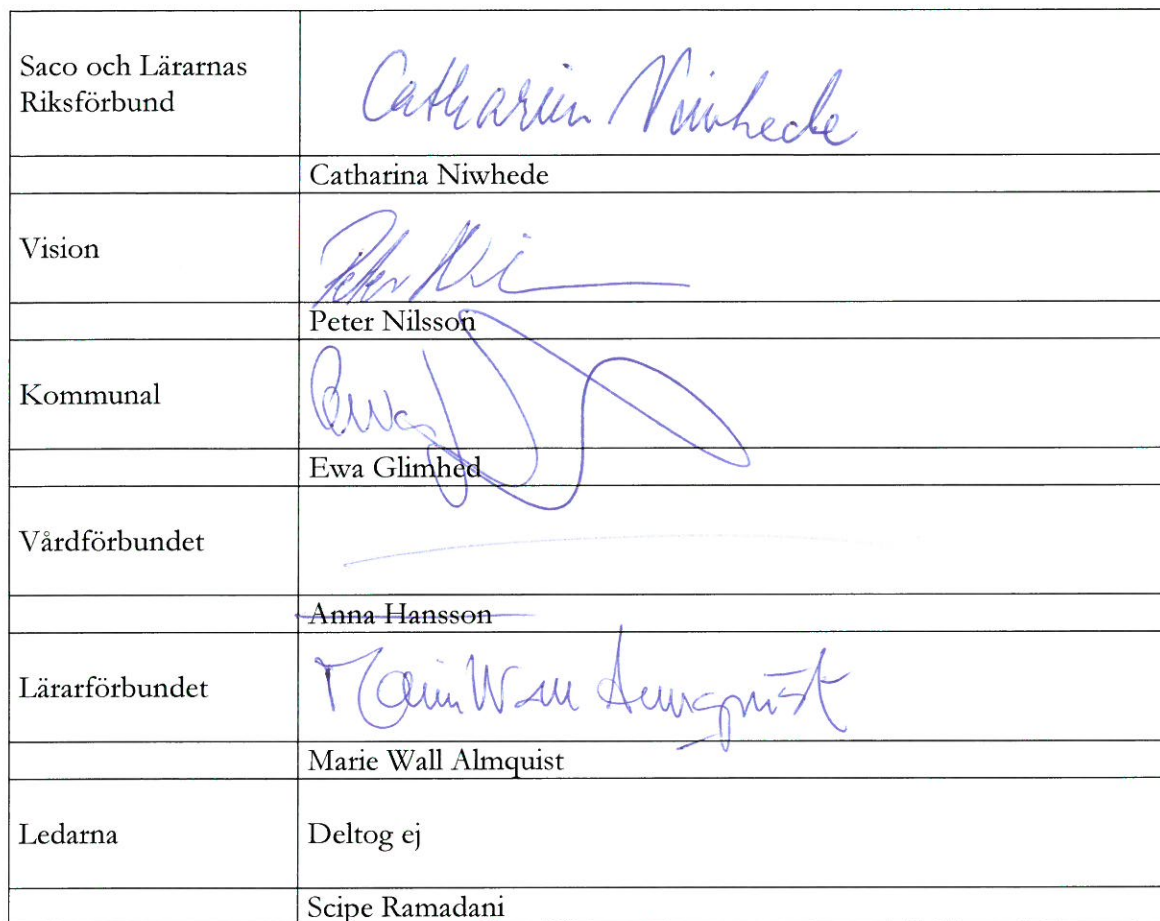 Saco och Lärarnas
Riksförbund
Catharina Niwhede
Catharina Niwhede
Vision
Peter Nilsson
Kommunal
Ewa
Ewa Glimhed
Vårdförbundet
Anna Hansson
Lärarförbundet
Marie Wall Almquist
Marie Wall Almquist
Ledarna
Deltog ej
Scipe Ramadani